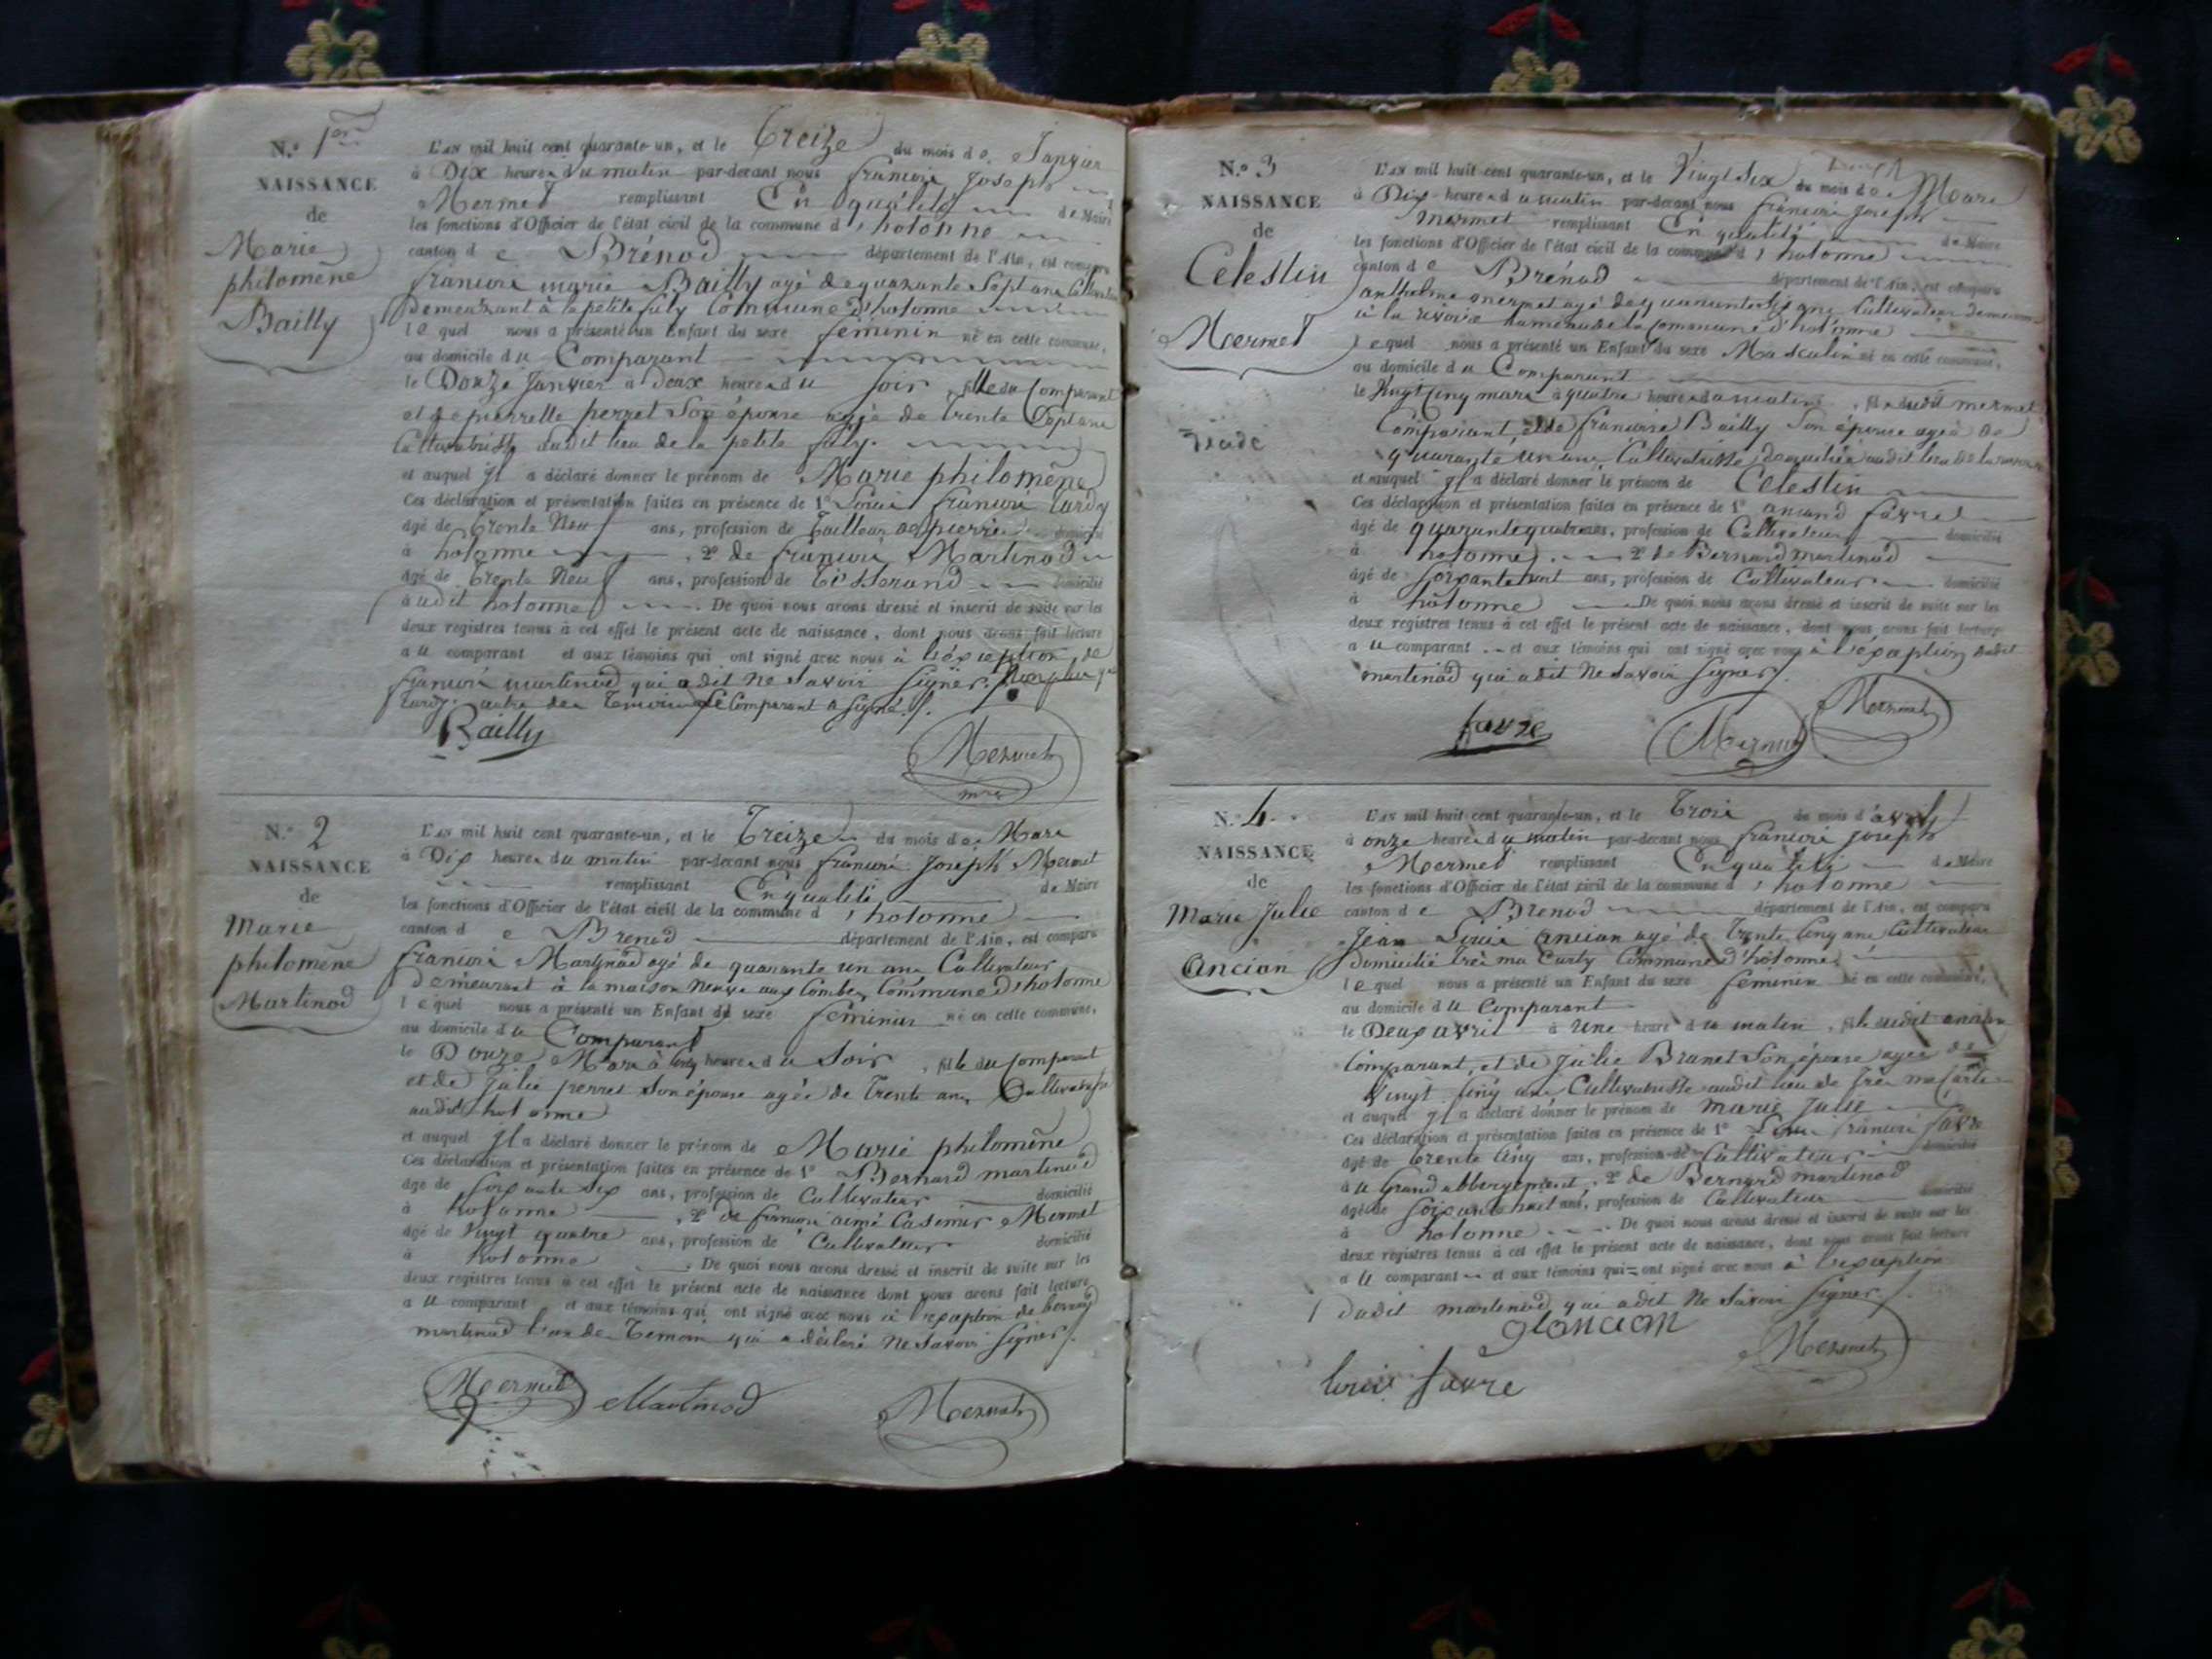 N.º 1er
NAISSANCE
de
Marie
philomène
Bailly
L'AN mil huit cent quarante-un, et le Treize du mois de Janvier
à Dix heures du matin par-devant nous francois Joseph
Mermet remplissant En qualité de Maire
les fonctions d'Officier de l'état civil de la commune d'hotonne
canton de Brénod département de l'Ain, est comparu
francois marie Bailly agé de quarante Sept ans Cultivateur
Demeurant à la petite Commune D'hotonne
lequel nous a présenté un Enfant du sexe féminin né en cette commune,
au domicile du Comparant
le Douze Janvier à deux heures du soir, fille du Comparant
et de pierrette perret Son épouse agée de trente Sept ans
Cultivatrisse dudit lieu de la petite
et auquel jl a déclaré donner le prénom de Marie philomène
Ces déclaration et présentation faites en présence de 1º Louis francois tardy
âgé de Trente Neuf ans, profession de Tailleur de pierre domicilié
à hotonne, 2º de francois Martinod
âgé de Trente Neuf ans, profession de Tisserand domicilié
audit hotonne De quoi nous avons dressé et inscrit de suite sur les
deux registres tenus à cet effet le présent acte de naissance, dont nous avons fait lecture
au comparant et aux témoins qui ont signé avec nous à l'éxception de
francois martinod qui a dit ne savoir signer. Non plus que
tardy autre des Temoins Le Comparant a signé.
Bailly
Mermet
mre
N.º 2
NAISSANCE
de
Marie
philomène
Martinod
L'AN mil huit cent quarante-un, et le Treize du mois de Mars
à Dix heures du matin par-devant nous francois Joseph Mermet
remplissant En qualité de Maire
les fonctions d'Officier de l'état civil de la commune d'hotonne
canton de Brenod département de l'Ain, est comparu
francois Martinod agé de quarante un ans Cultivateur
Demeurant à la maison Neuve aux Combes Commune D'hotonne
lequel nous a présenté un Enfant du sexe feminin né en cette commune,
au domicile du Comparant
le Douze Mars à heures du Soir, fille du Comparant
et de Julie perret Son épouse agée de Trente ans Cultivatrisse
audit hotonne
et auquel jl a déclaré donner le prénom de Marie philomène
Ces déclaration et présentation faites en présence de 1º Bernard martinod
âgé de ans, profession de Cultivateur domicilié
à hotonne, 2º de francois aimé Casimir Mermet
âgé de Vingt quatre ans, profession de Cultivateur domicilié
à hotonne De quoi nous avons dressé et inscrit de suite sur les
deux registres tenus à cet effet le présent acte de naissance dont nous avons fait lecture
au comparant et aux témoins qui ont signé avec nous à l'exception de bernard
martinod l'un des Temoin qui a déclaré ne savoir signer.
Mermet Martinod Mermet
N.º 3
NAISSANCE
de
Celestin
Mermet
L'AN mil huit cent quarante-un, et le Vingt Six du mois de Mars
à Dix heures du matin par-devant nous francois Joseph
Mermet remplissant En qualité de Maire
les fonctions d'Officier de l'état civil de la commune d'hotonne
canton de Brénod département de l'Ain, est comparu
anthelme mermet agé de quarante Six ans Cultivateur demeurant
à la hameau de la Commune d'hotonne
lequel nous a présenté un Enfant du sexe Masculin né en cette commune,
au domicile du Comparant
le Vingt Cinq mars à quatre heures du matin, fils dudit mermet
Comparant, et de francoise Bailly Son épouse agée de
quarante un ans, Cultivatrisse domiciliée audit lieu de la
et auquel jl a déclaré donner le prénom de Celestin
Ces déclaration et présentation faites en présence de 1º
âgé de quarante quatre ans, profession de Cultivateur domicilié
à hotonne, 2º de Bernard martinod
âgé de Soixante huit ans, profession de Cultivateur domicilié
à hotonne De quoi nous avons dressé et inscrit de suite sur les
deux registres tenus à cet effet le présent acte de naissance, dont nous avons fait lecture
au comparant et aux témoins qui ont signé avec nous à l'exception dudit
martinod qui a dit ne savoir signer.
favre Mermet Mermet
N.º 4
NAISSANCE
de
Marie Julie
Ancian
L'AN mil huit cent quarante-un, et le Trois du mois d'avril
à onze heures du matin par-devant nous francois joseph
Mermet remplissant En qualité de Maire
les fonctions d'Officier de l'état civil de la commune d'hotonne
canton de Brenod département de l'Ain, est comparu
Jean Louis ancian agé de Trente Cinq ans Cultivateur
Domicilié Commune d'hotonne
lequel nous a présenté un Enfant du sexe féminin né en cette commune,
au domicile du Comparant
le Deux avril à Une heure du matin, fille dudit ancian
Comparant, et de Julie Brunet Son épouse agée de
Vingt Cinq ans Cultivatrisse audit lieu de
et auquel jl a déclaré donner le prénom de marie Julie
Ces déclaration et présentation faites en présence de 1º Louis francois favre
âgé de trente Cinq ans, profession de Cultivateur domicilié
au Grand abbergement, 2º de Bernard martinod
âgé de Soixante huit ans, profession de Cultivateur domicilié
à hotonne De quoi nous avons dressé et inscrit de suite sur les
deux registres tenus à cet effet le présent acte de naissance, dont nous avons fait lecture
au comparant et aux témoins qui ont signé avec nous à l'exception
dudit martinod qui a dit ne savoir signer.
ancian
Mermet
louis favre